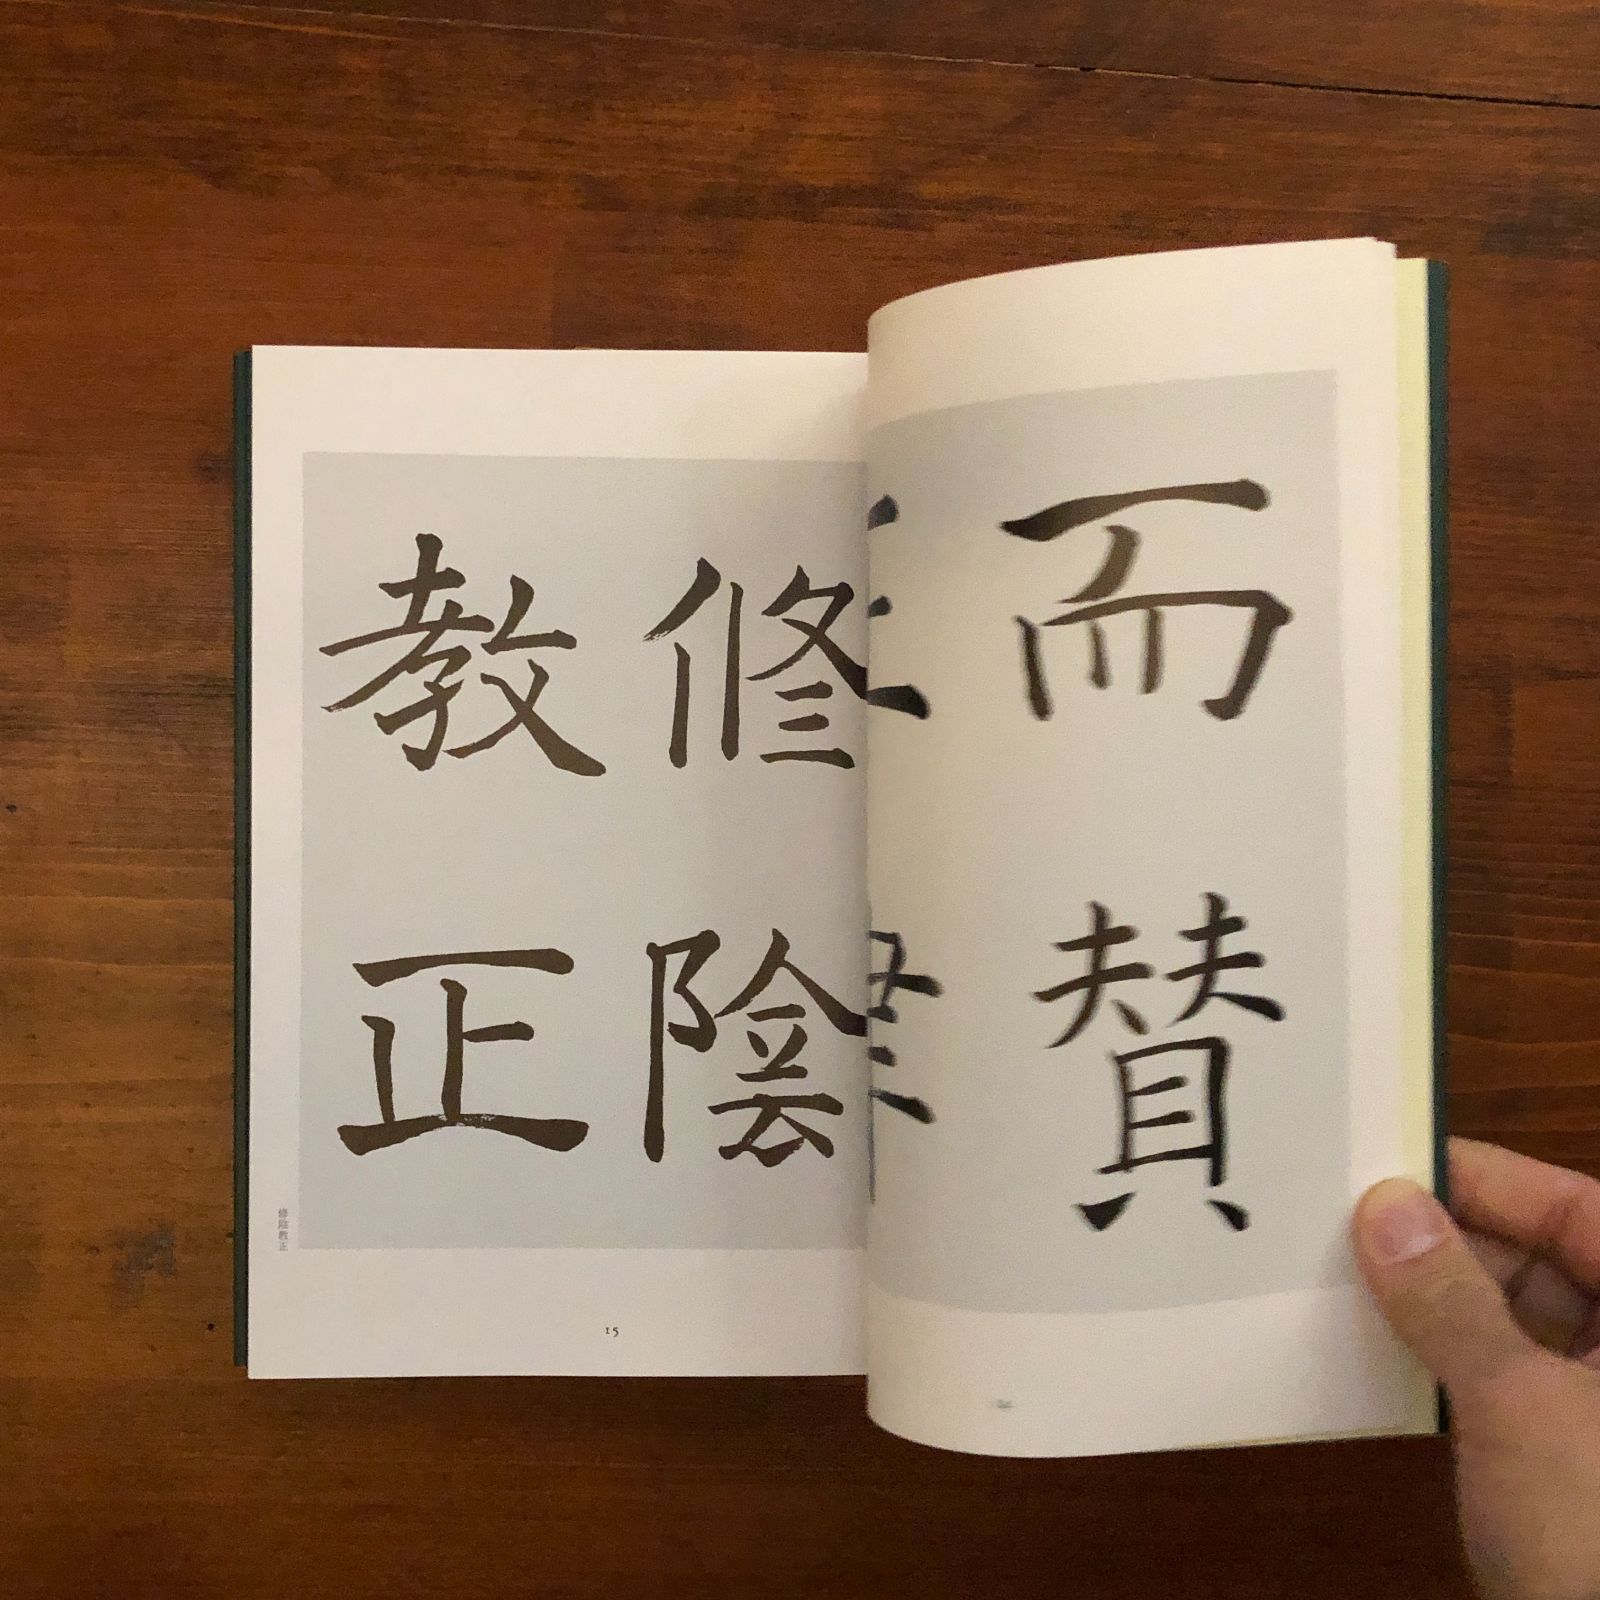 而賛
修陰
教正
修陰教正
15